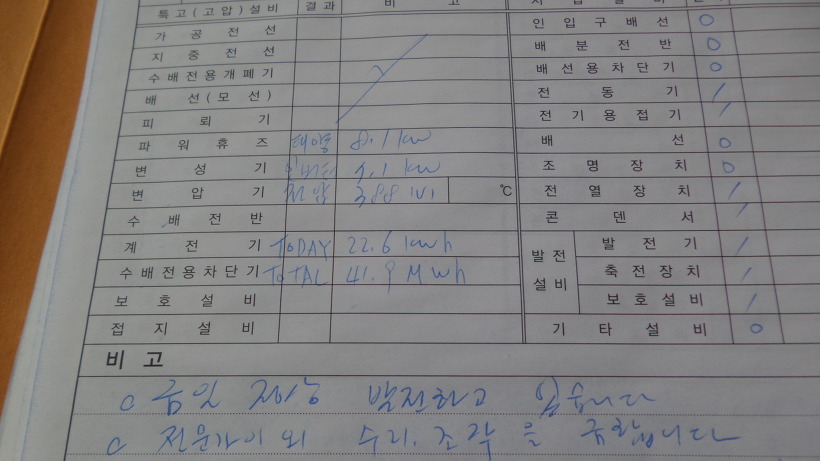 특고(고압)설비 결과 비 고
가 공 전 선
지 중 전 선
수배전용개폐기
배 선(모 선)
피 뢰 기
파 워 휴 즈 태양광 8.1 kW
변 성 기 인버터 4.1 kW
변 압 기 전압 388 ℃
수 배 전 반
계 전 기 TODAY 22.6 kWh
수배전용차단기 TOTAL 41.9 MWh
보 호 설 비
접 지 설 비
인 입 구 배 선 ○
배 분 전 반 ○
배 선 용 차 단 기 ○
전 동 기 /
전 기 용 접 기 /
배 선 ○
조 명 장 치 ○
전 열 장 치 /
콘 덴 서 /
발 전 설 비
발 전 기 /
축 전 장 치 /
보 호 설 비 /
기 타 설 비 ○
비 고
○ 금일 정상 발전하고 있습니다
○ 전문가이외 수리.조작을 금합니다